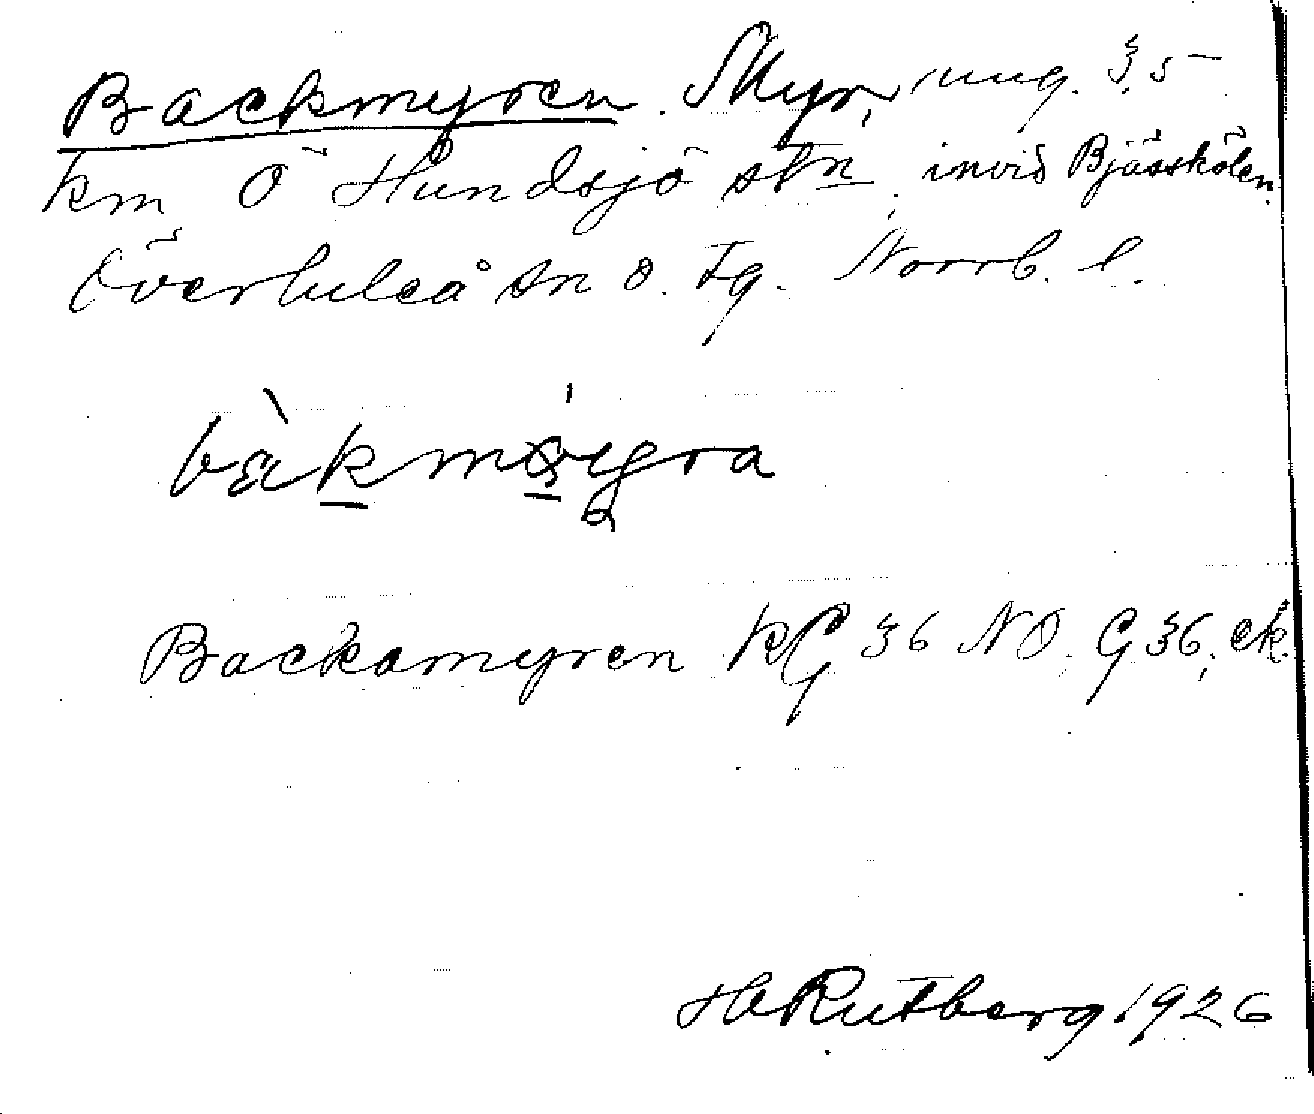 Backmyren. Myr, ung. 3,5
km Ö Hundsjö stn invid Bjässkölen.
Överluleå sn o. tg. Norrb. l.
Backamyren kG 36 NO. G36, ek.
H Rutberg 1926